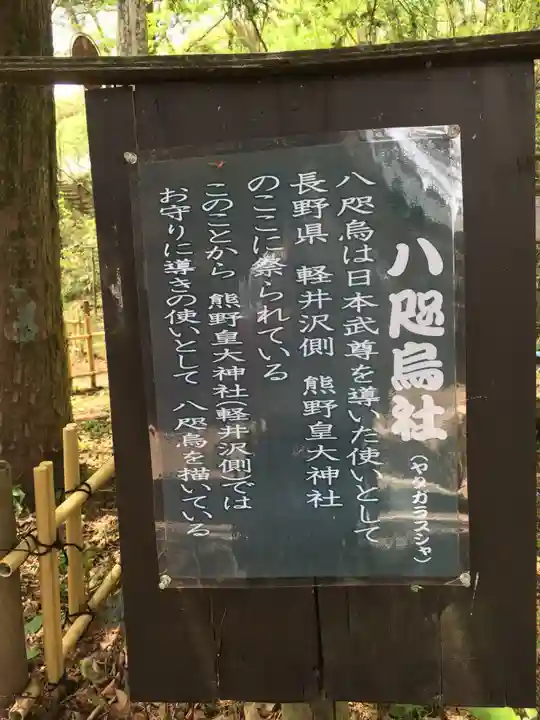 八咫烏社(ヤタガラスシャ)
八咫烏は日本武尊を導いた使いとして
長野県 軽井沢側 熊野皇大神社
のここに祭られている
このことから 熊野皇大神社(軽井沢側)では
お守りに導きの使いとして 八咫烏を描いている